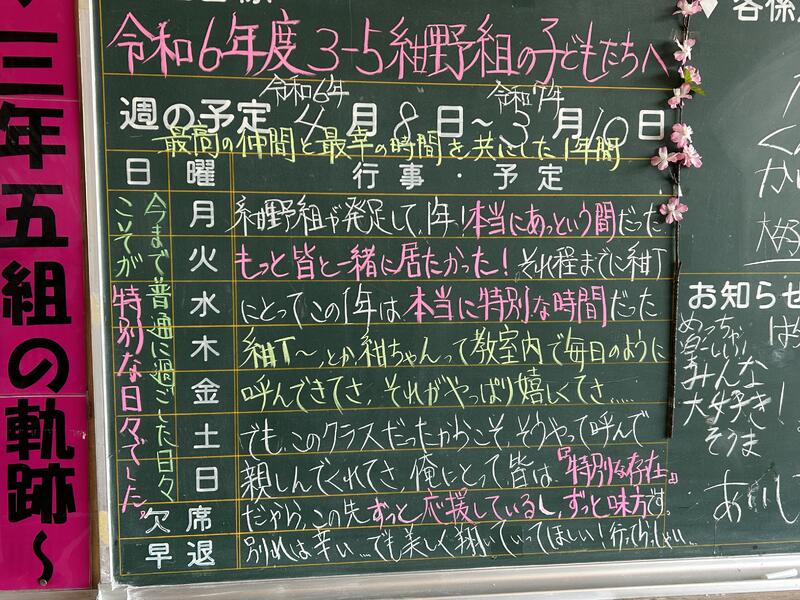 三年五組の軌跡〜
令和6年度 3-5 紺野組の子どもたちへ
令和6年 令和7年
週の予定 4月8日〜3月10日
最高の仲間と最幸の時間を共にした1年間
日 曜 行事・予定
今まで普通に過ごした日々
こそが特別な日々でした。
月 紺野組が発足して、1年!本当にあっという間だった
火 もっと皆と一緒に居たかった!それ程までに紺T
水 にとってこの1年は、本当に特別な時間だった
木 紺T〜、とか紺ちゃんって教室内で毎日のように
金 呼んできてさ、それがやっぱり嬉しくてさ.....
土 でも、このクラスだったからこそ、そうやって呼んで
日 親しんでくれてさ、俺にとって皆は、『特別な存在』
欠席 だから、この先ずっと応援しているし、ずっと味方です。
早退 別れは辛い...でも美しく翔いていってほしい!行ってらっしゃい...
各係
お知らせ
めっちゃ
楽しい!
みんな
大好き!
そうま